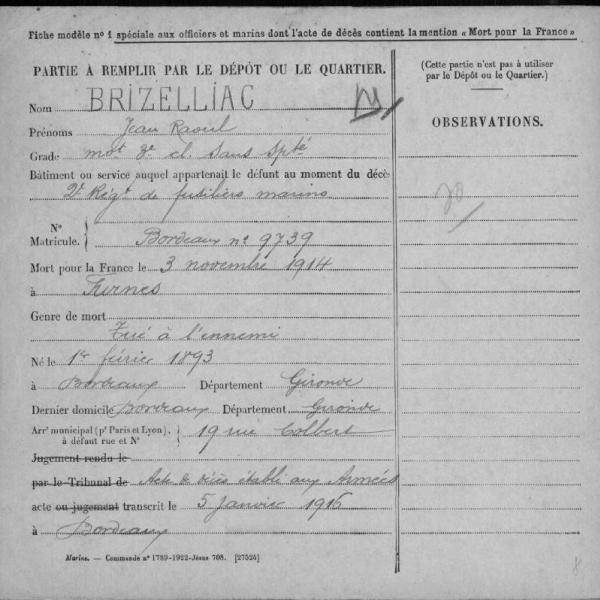 Fiche modèle n° 1 spéciale aux officiers et marins dont l'acte de décès contient la mention « Mort pour la France »
PARTIE A REMPLIR PAR LE DÉPÔT OU LE QUARTIER.
Nom BRIZELLIAC
Prénoms Jean Raoul
Grade mot 3e cl. sans spté
Bâtiment ou service auquel appartenait le défunt au moment du décès
2e Régt de fusiliers marins
N° Matricule. Bordeaux n° 9739
Mort pour la France le 3 novembre 1914
à Furnes
Genre de mort
Tué à l'ennemi
Né le 1er février 1893
à Bordeaux Département Gironde
Dernier domicile Bordeaux Département Gironde
Arrt municipal (pr Paris et Lyon), à défaut rue et N° 19 rue Colbert
Jugement rendu le
par le Tribunal de Acte de décès établi aux Armées
acte ou jugement transcrit le 5 Janvier 1916
à Bordeaux
Marine. — Commande n° 1789-1922-Jésus 708. [27524]
(Cette partie n'est pas à utiliser
par le Dépôt ou le Quartier.)
OBSERVATIONS.
8